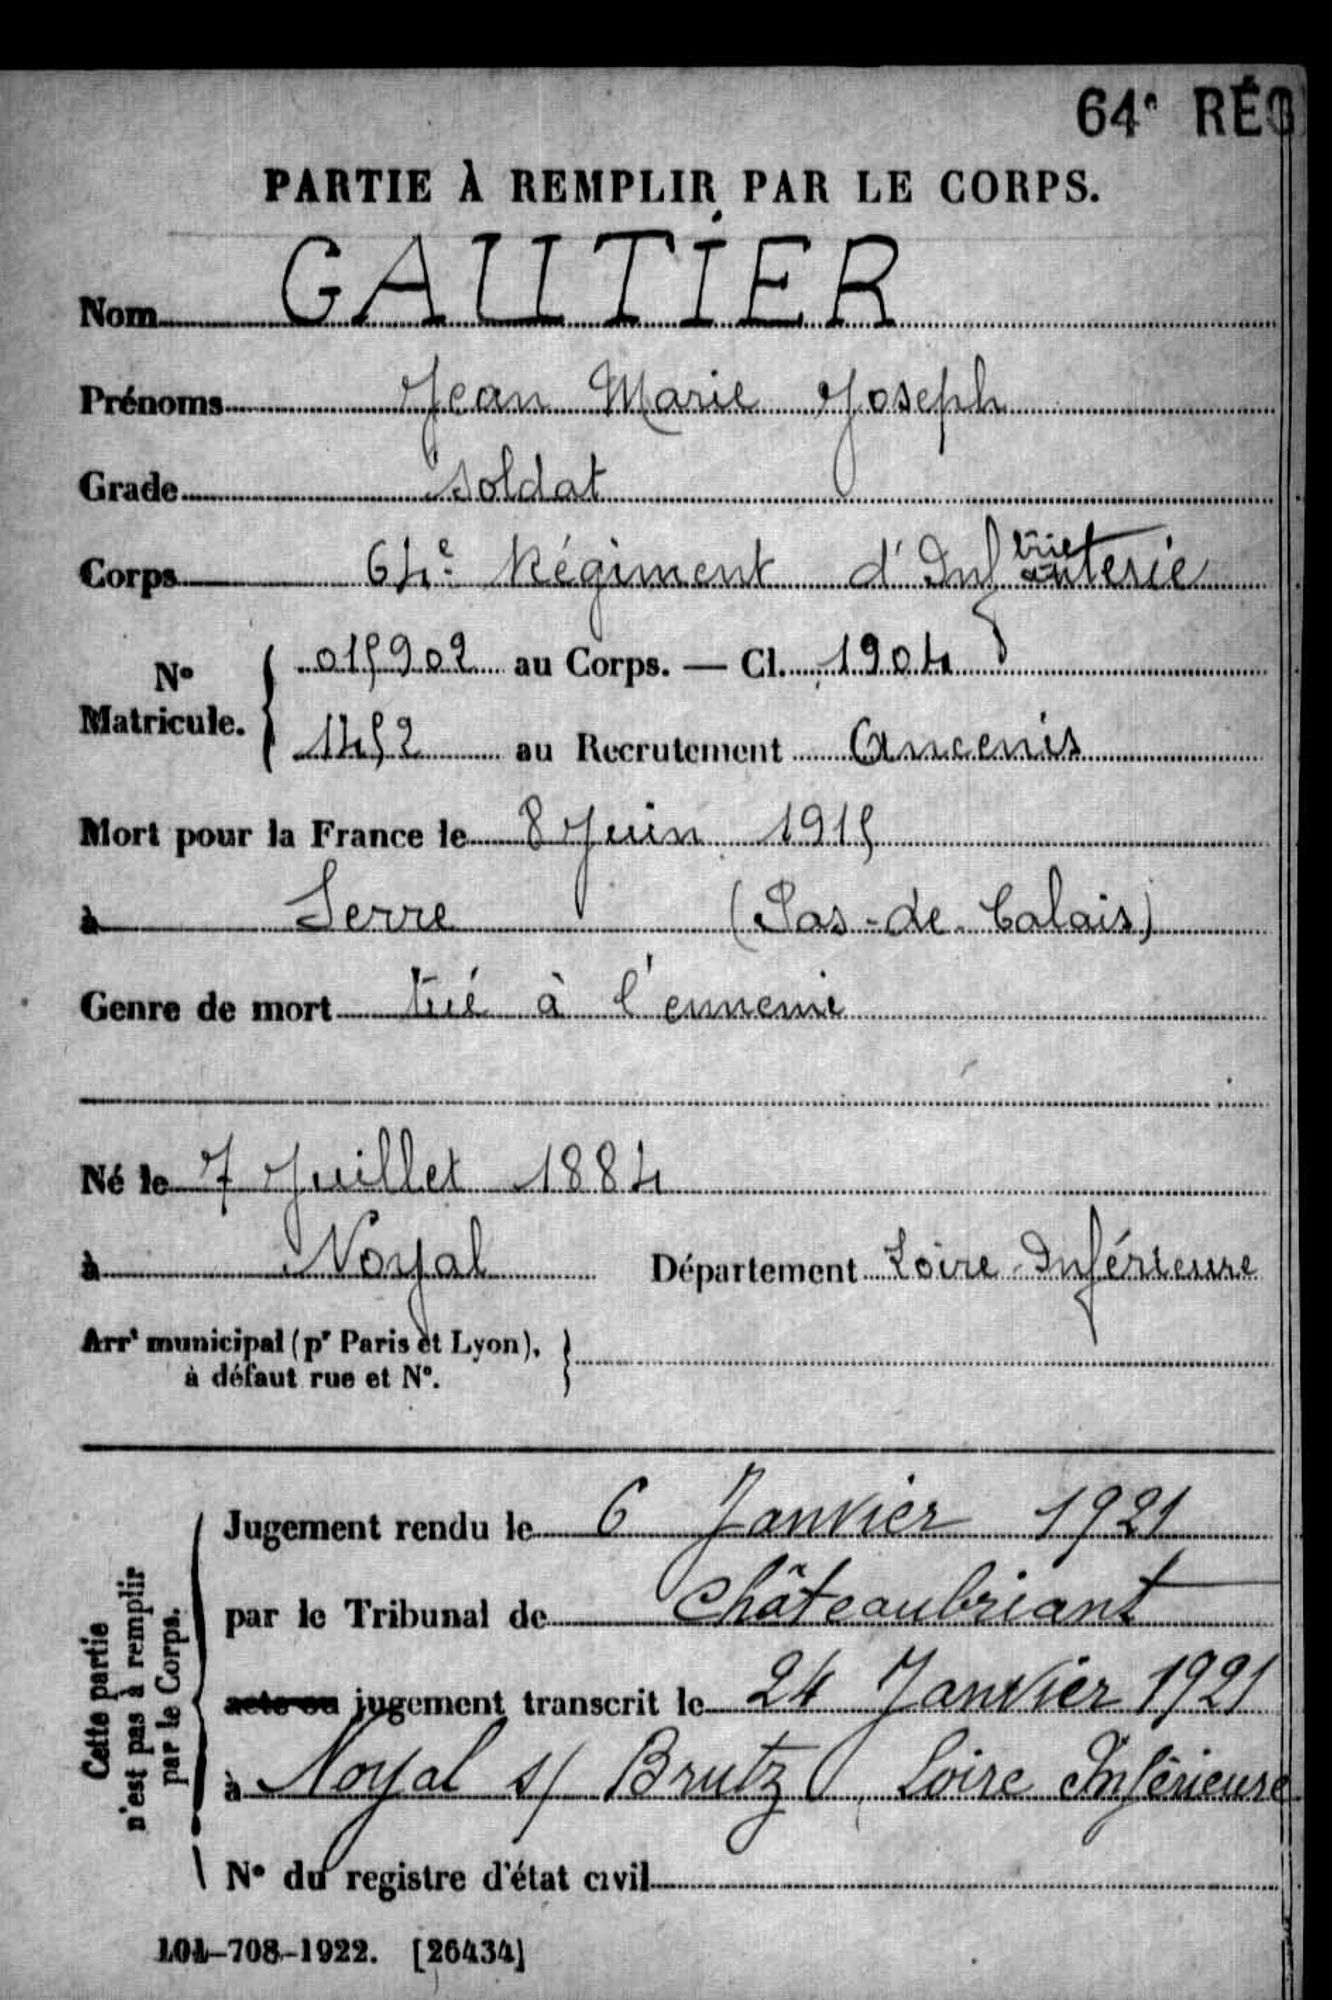 64e RÉG
PARTIE À REMPLIR PAR LE CORPS.
Nom GAUTIER
Prénoms Jean Marie Joseph
Grade soldat
Corps 64e Régiment d'Infanterie
No Matricule. 015902 au Corps. — Cl. 1904
1452 au Recrutement Ancenis
Mort pour la France le 8 Juin 1915
à Serre (Pas-de-Calais)
Genre de mort tué à l'ennemi
Né le 7 Juillet 1884
à Noyal Département Loire-Inférieure
Arrt municipal (pr Paris et Lyon),
à défaut rue et No.
Cette partie n'est pas à remplir par le Corps.
Jugement rendu le 6 Janvier 1921
par le Tribunal de Châteaubriant
acte ou jugement transcrit le 24 Janvier 1921
à Noyal s/ Brutz, Loire Inférieure
No du registre d'état civil
101-708-1922. [26434]